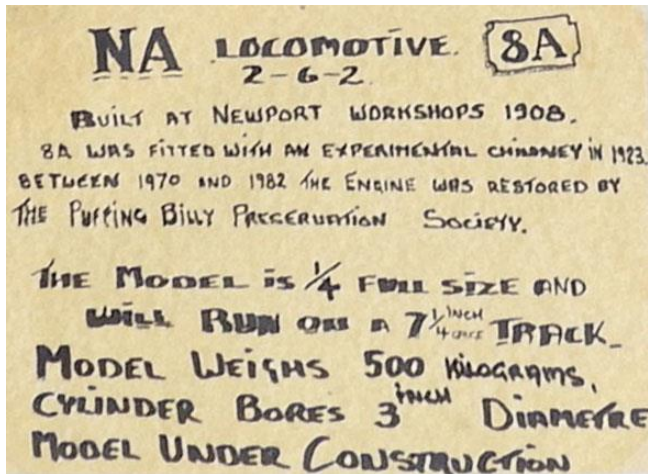 NA LOCOMOTIVE. 8A
2-6-2
BUILT AT NEWPORT WORKSHOPS 1908.
8A WAS FITTED WITH AN EXPERIMENTAL CHIMNEY IN 1923.
BETWEEN 1970 AND 1982 THE ENGINE WAS RESTORED BY
THE PUFFING BILLY PRESERVATION SOCIETY.
THE MODEL IS 1/4 FULL SIZE AND
WILL RUN ON A 7 1/4 INCH TRACK_
MODEL WEIGHS 500 KILOGRAMS,
CYLINDER BORES 3 INCH DIAMETRE
MODEL UNDER CONSTRUCTION